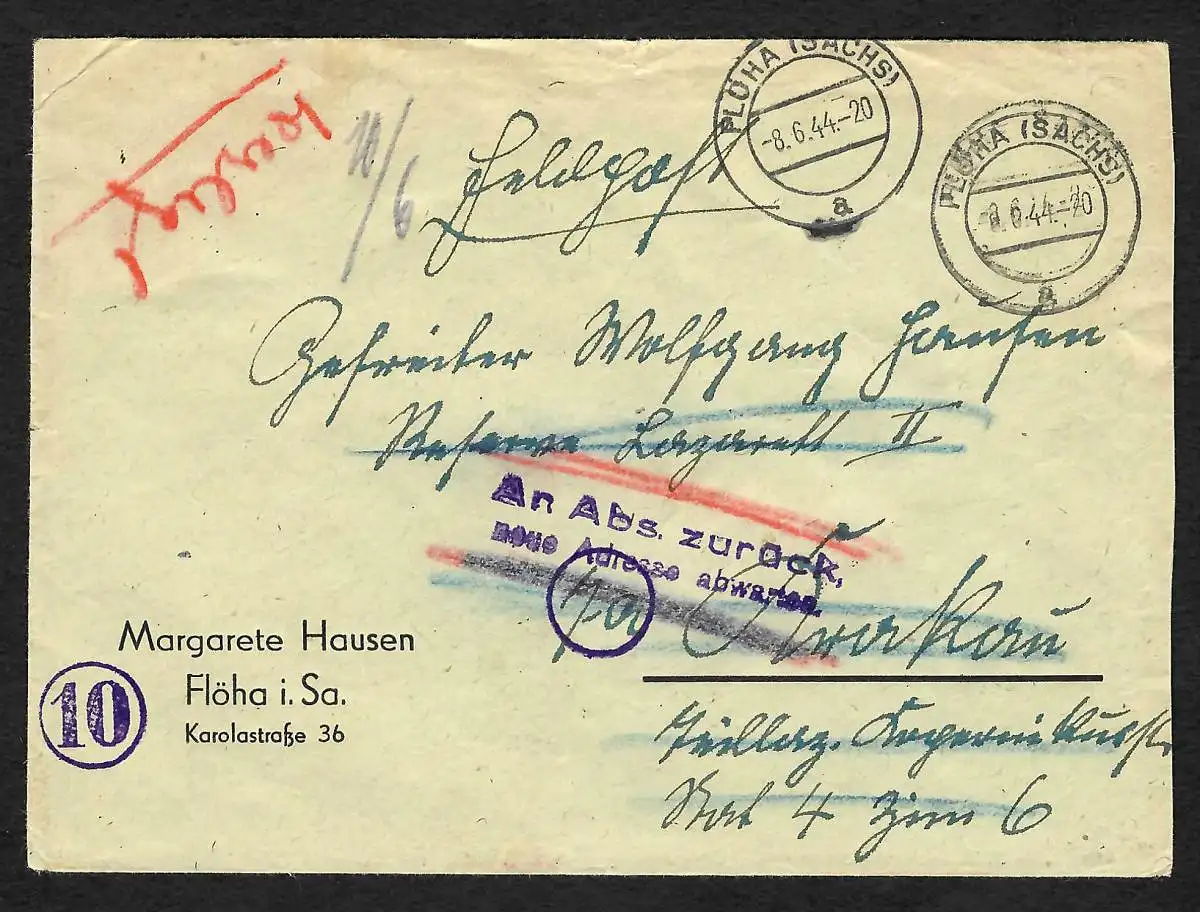 Feldpost
FLÖHA (SACHS)
-8.6.44.-20
a
FLÖHA (SACHS)
-8.6.44.-20
a
10/6
Gefreiter Wolfgang Hausen
Reserve Lazarett II
An Abs. zurück,
neue Adresse abwarten.
Krakau
Margarete Hausen
Flöha i. Sa.
Karolastraße 36
10
Teillaz. Kopernikusstr.
Stat 4 Zim 6